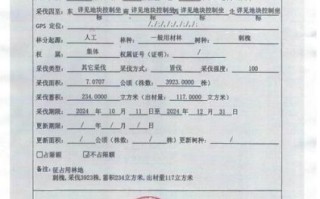 采伐四至：东 详见地块控制坐 南 详见地块控制坐 西 详见地块控制坐 北 详见地块控制坐
GPS 定位：/,/,/,/,/,/,/,/
林分起源： 人工 林种： 一般用材林 树种： 刺槐
权 属： 集体 权属证号（证明）：
采伐类型： 其它采伐 采伐方式： 皆伐 采伐强度： 100
采伐面积： 7.9707 公顷（株数： 3923.0000 株）
采伐蓄积： 234.0000 立方米（出材量： 117.0000 立方米）
采伐期限： 2024 年 10 月 11 日至 2024 年 12 月 31 日
更新期限： / 年 / 月 / 日
更新面积： / 公顷（株数： / 株）更新树种： /
□占限额 ☑不占限额
备注：征占用林地
刺槐，采伐3923株，蓄积234立方米，出材量117立方米